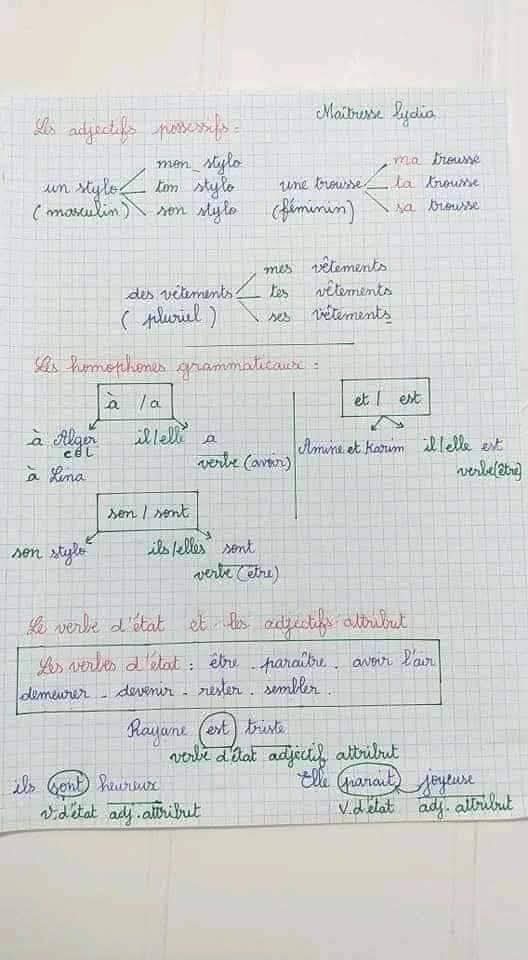 Maîtresse Lydia
Les adjectifs possessifs :
mon stylo
un stylo ton stylo
(masculin) son stylo
ma trousse
une trousse ta trousse
(féminin) sa trousse
mes vêtements
des vêtements tes vêtements
(pluriel) ses vêtements
Les homophones grammaticaux :
à / a
à Alger il/elle a
CDL verbe (avoir)
à Lina
et / est
Amine et Karim il/elle est
verbe (être)
son / sont
son stylo ils/elles sont
verbe (être)
Le verbe d'état et les adjectifs attribut
Les verbes d'état : être - paraître - avoir l'air
demeurer - devenir - rester - sembler.
Rayane est triste
verbe d'état adjectif attribut
ils sont heureux Elle parait joyeuse
v. d'état adj. attribut V. d'état adj. attribut